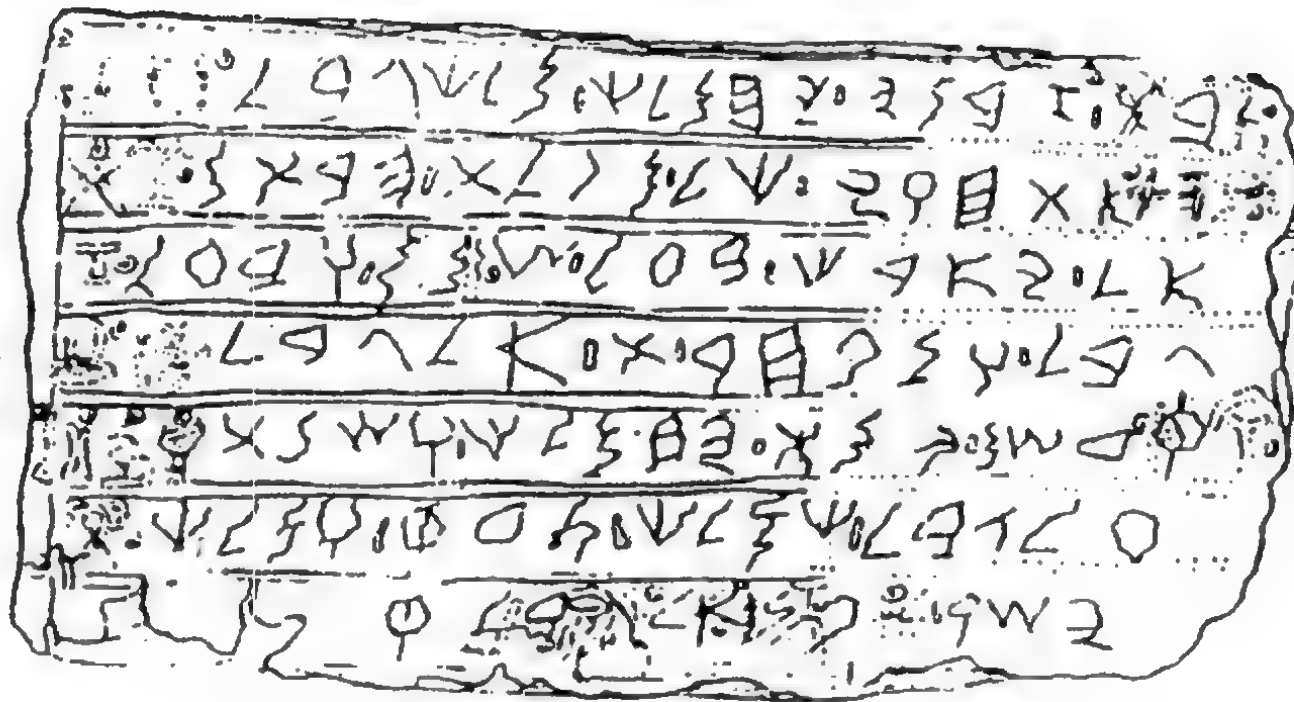 𐤁𐤕𐤟𐤆𐤁𐤍𐤉𐤟𐤉𐤇𐤌𐤋𐤊𐤟𐤌𐤋𐤊𐤂𐤁𐤋
𐤄𐤀𐤕𐤇𐤅𐤉𐤟𐤊𐤋𐤟𐤌𐤐𐤋𐤕𐤟𐤄𐤁𐤕𐤌
𐤀𐤋𐤟𐤉𐤀𐤓𐤊𐤟𐤁𐤏𐤋𐤟𐤔𐤌𐤌𐤟𐤅𐤁𐤏𐤋
𐤂𐤁𐤋𐤟𐤅𐤌𐤐𐤇𐤓𐤟𐤕𐤟𐤀𐤋𐤂𐤁𐤋
𐤒𐤃𐤔𐤌𐤟𐤉𐤌𐤕𐤟𐤉𐤇𐤌𐤋𐤊𐤟𐤅𐤔𐤍𐤕𐤅
𐤏𐤋𐤂𐤁𐤋𐤟𐤊𐤌𐤋𐤊𐤟𐤑𐤃𐤒𐤟𐤅𐤌𐤋𐤊
𐤉𐤔𐤓𐤟𐤋𐤐𐤍𐤟𐤀𐤋𐤂𐤁𐤋𐤒